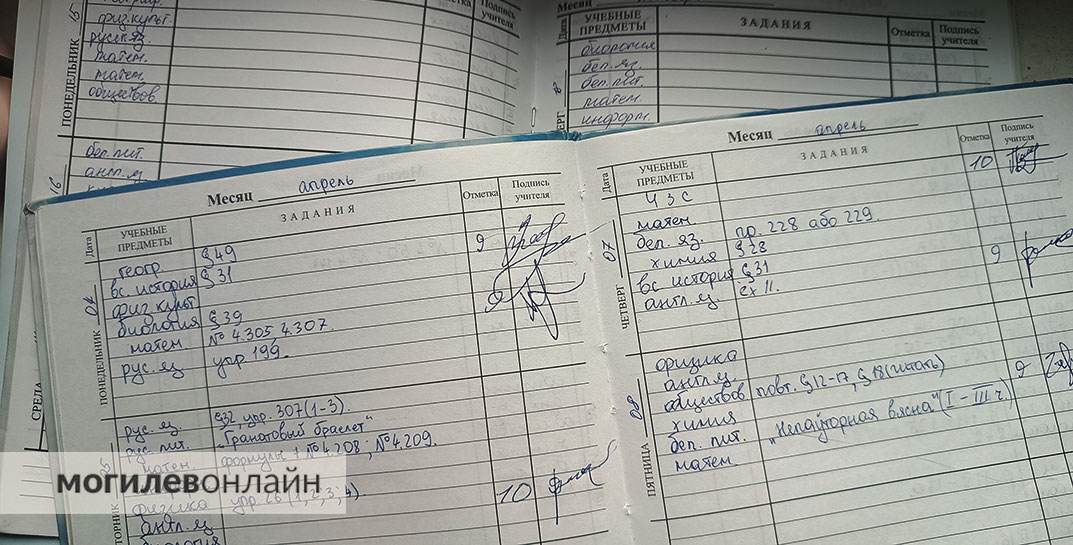 физ.культ.
русск.яз.
матем.
матем.
обществов.
ПОНЕДЕЛЬНИК
15
Подпись
учителя
бел.лит.
англ.яз
16
СРЕДА
Месяц
УЧЕБНЫЕ
ПРЕДМЕТЫ
ЗАДАНИЯ
Отметка
Подпись
учителя
биология
бел.яз.
бел.лит.
матем.
информ.
Месяц апрель
Дата
УЧЕБНЫЕ
ПРЕДМЕТЫ
ЗАДАНИЯ
Отметка
Подпись
учителя
ПОНЕДЕЛЬНИК 04
геогр §49 9
вс. история §31
физ культ 9
биология §39
матем № 4.305, 4.307.
рус. яз упр 199.
рус. яз. §32, упр. 307(1-3).
рус. лит. "Гранатовый браслет"
матем формулы! №4.208, №4.209.
физика упр 26 (1,2,3,4). 10
англ. яз
биология
могилевонлайн
Месяц апрель
Дата
УЧЕБНЫЕ
ПРЕДМЕТЫ
ЗАДАНИЯ
Отметка
Подпись
учителя
ЧЕТВЕРГ 07
ЧЗС 10
матем
бел. яз. пр. 228 або 229
химия §28
вс история §31 9
англ. яз ex 11.
ПЯТНИЦА 08
физика
англ.яз.
обществов повт. §12-17, §18(читать) 9
химия
бел. лит. „Непаўторная вясна" (I - III ч.)
матем